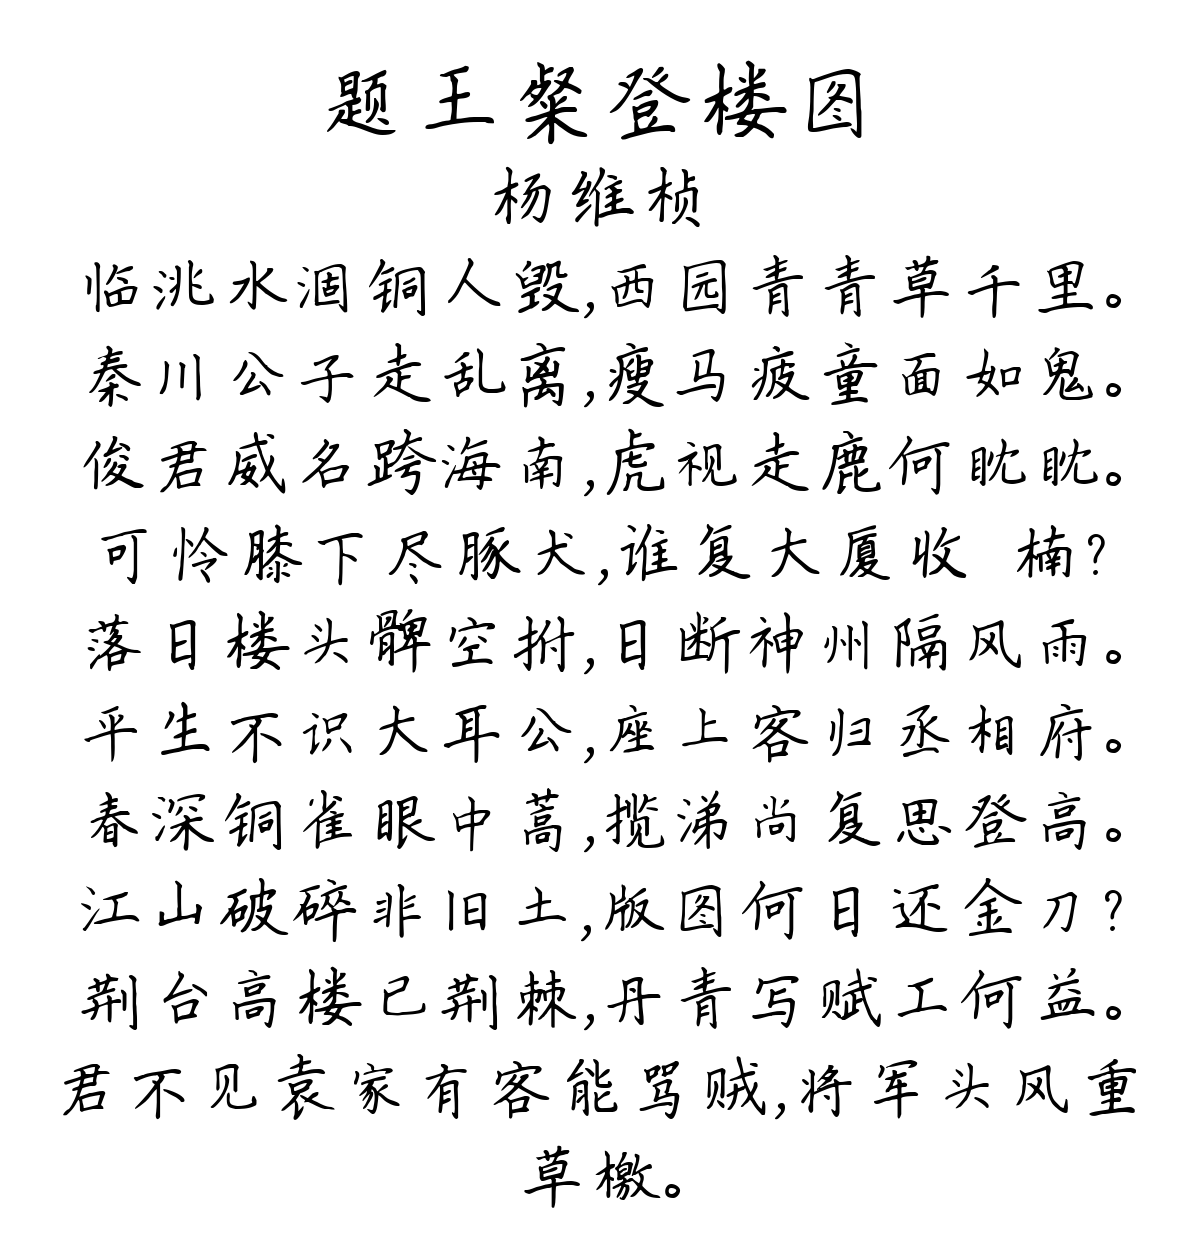 题王粲登楼图
杨维桢
临洮水涸铜人毁,西园青青草千里。
秦川公子走乱离,瘦马疲童面如鬼。
俊君威名跨海南,虎视走鹿何眈眈。
可怜膝下尽豚犬,谁复大厦收 楠?
落日楼头髀空拊,日断神州隔风雨。
平生不识大耳公,座上客归丞相府。
春深铜雀眼中蒿,揽涕尚复思登高。
江山破碎非旧土,版图何日还金刀?
荆台高楼已荆棘,丹青写赋工何益。
君不见袁家有客能骂贼,将军头风重
草檄。